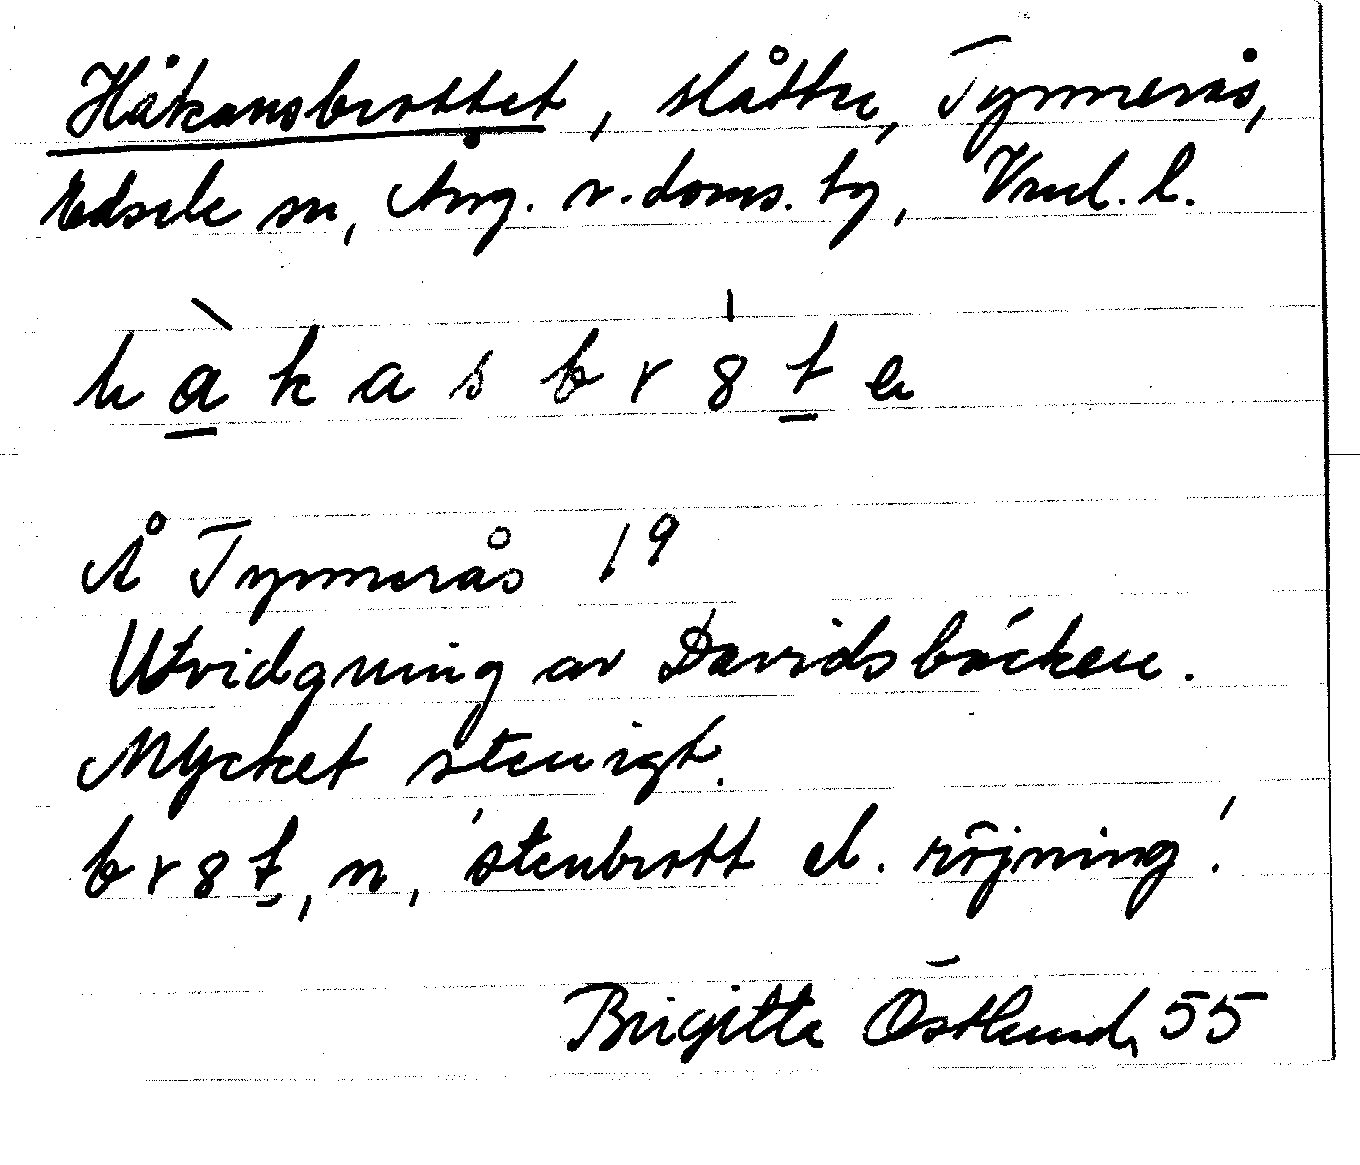 Håkansbrottet, slåtter, Tynnerås,
Edsele sn, Ång. v. doms. tg, Vnl. l.
h a k a s b r 8 t e
Å Tynnerås 19
Utvidgning av Davidsbäcken.
Mycket stenigt.
b r 8 t, n, 'stenbrott el. röjning'.
Brigitte Östlund, 55